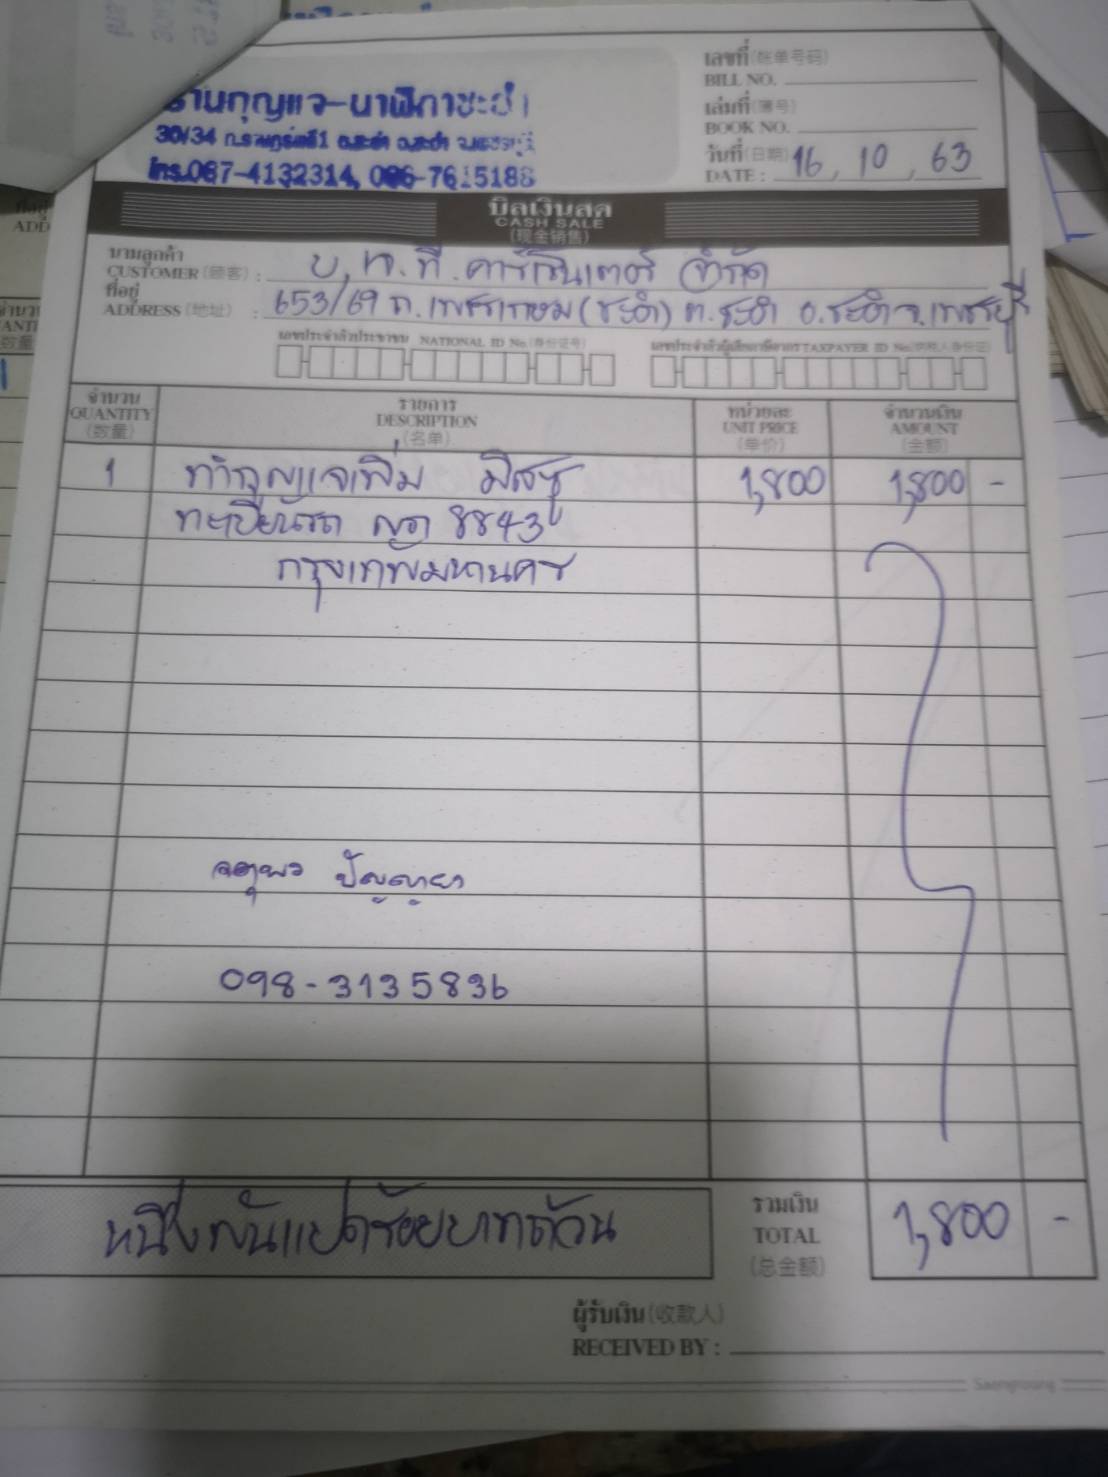 เลขที่ (帐单号码)
BILL NO.
เล่มที่ (簿号)
BOOK NO.
วันที่ (日期) 16, 10, 63
DATE :
ร้านกุญแจ-นาฬิกาชะอำ
30/34
โทร.087-4132314, 086-7615188
บิลเงินสด
CASH SALE
(现金销售)
นามลูกค้า
CUSTOMER (顾客) : จำกัด
ที่อยู่
ADDRESS (地址) : 653/69 ถ.เพชรเกษม (ชะอำ) ต.ชะอำ อ.ชะอำ จ.เพชรบุรี
เลขประจำตัวประชาชน NATIONAL ID No. (身份证号)
เลขประจำตัวผู้เสียภาษีอากร TAXPAYER ID No. (纳税人身份证)
จำนวน รายการ หน่วยละ จำนวนเงิน
QUANTITY DESCRIPTION UNIT PRICE AMOUNT
(数量) (名单) (单价) (金额)
1 ทำกุญแจเพิ่ม 1,800 1,800 -
ทะเบียนรถ 8843
กรุงเทพมหานคร
098-3135836
หนึ่งพันแปดร้อยบาทถ้วน
รวมเงิน 1,800 -
TOTAL
(总金额)
ผู้รับเงิน (收款人)
RECEIVED BY :